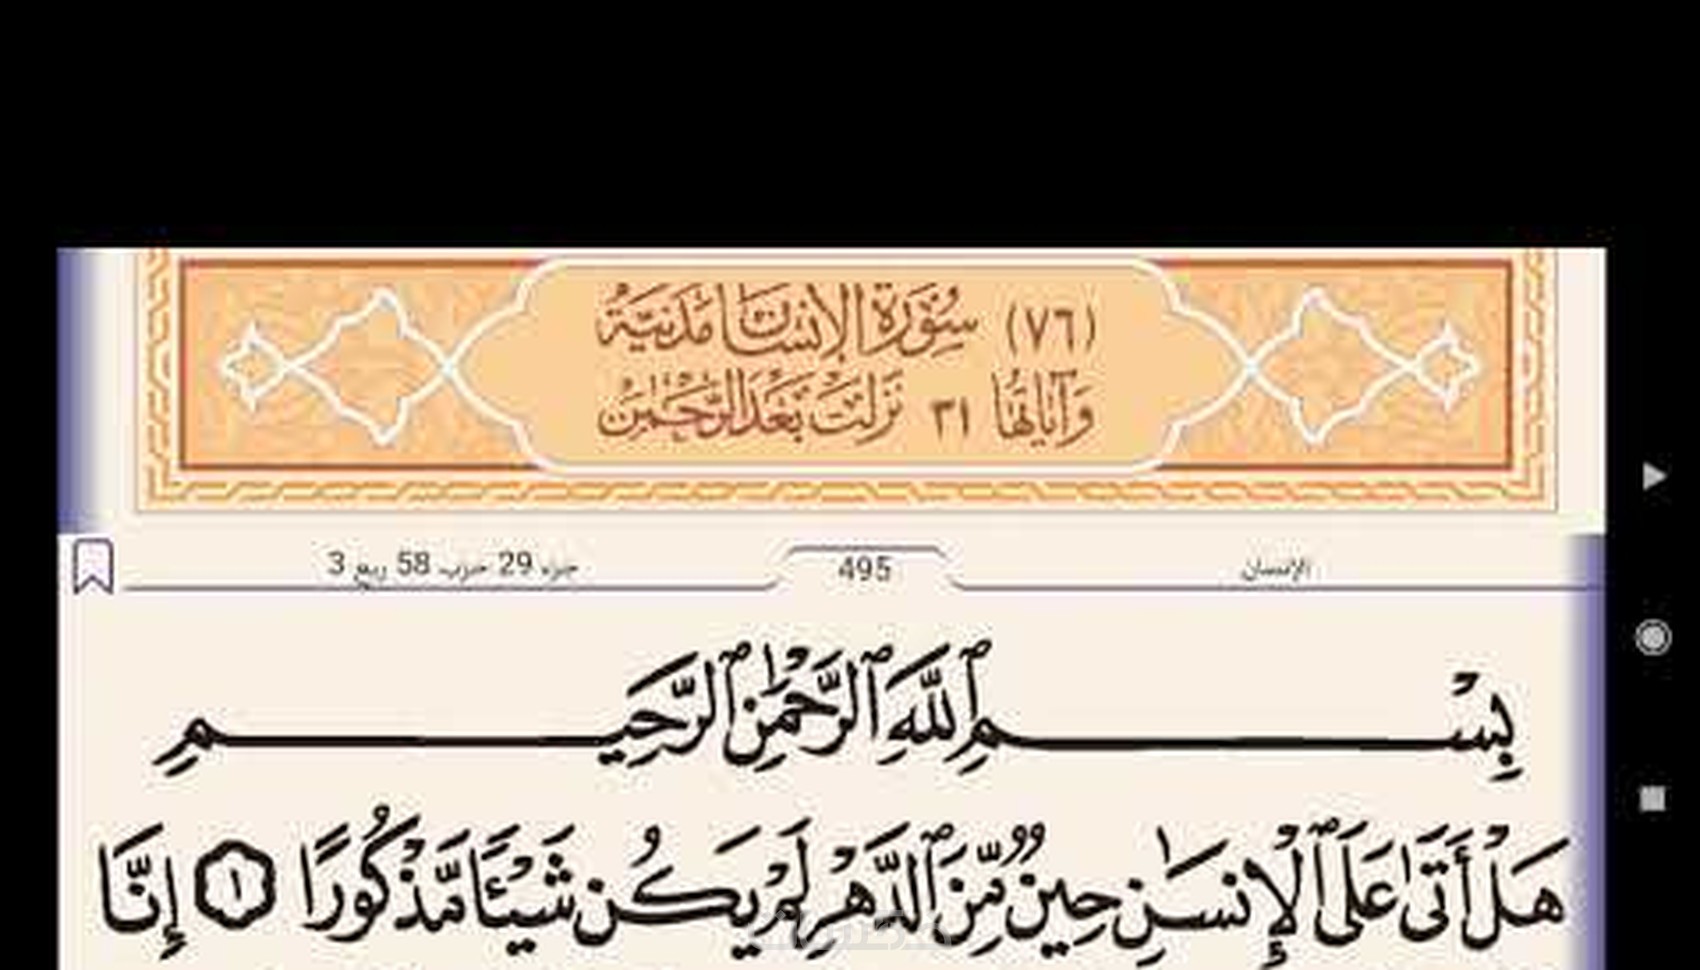 (٧٦) سُوْرَةُ الإِنسَانِ مَدَنِيَّةٌ
وَآيَاتُهَا ٣١ نَزَلَتْ بَعْدَ الرَّحْمٰنِ
الإنسان 495 جزء 29 حزب 58 ربع 3
بِسْمِ ٱللَّهِ ٱلرَّحْمَٰنِ ٱلرَّحِيمِ
هَلْ أَتَىٰ عَلَى ٱلْإِنسَٰنِ حِينٌ مِّنَ ٱلدَّهْرِ لَمْ يَكُن شَيْـًٔا مَّذْكُورًا ١ إِنَّا